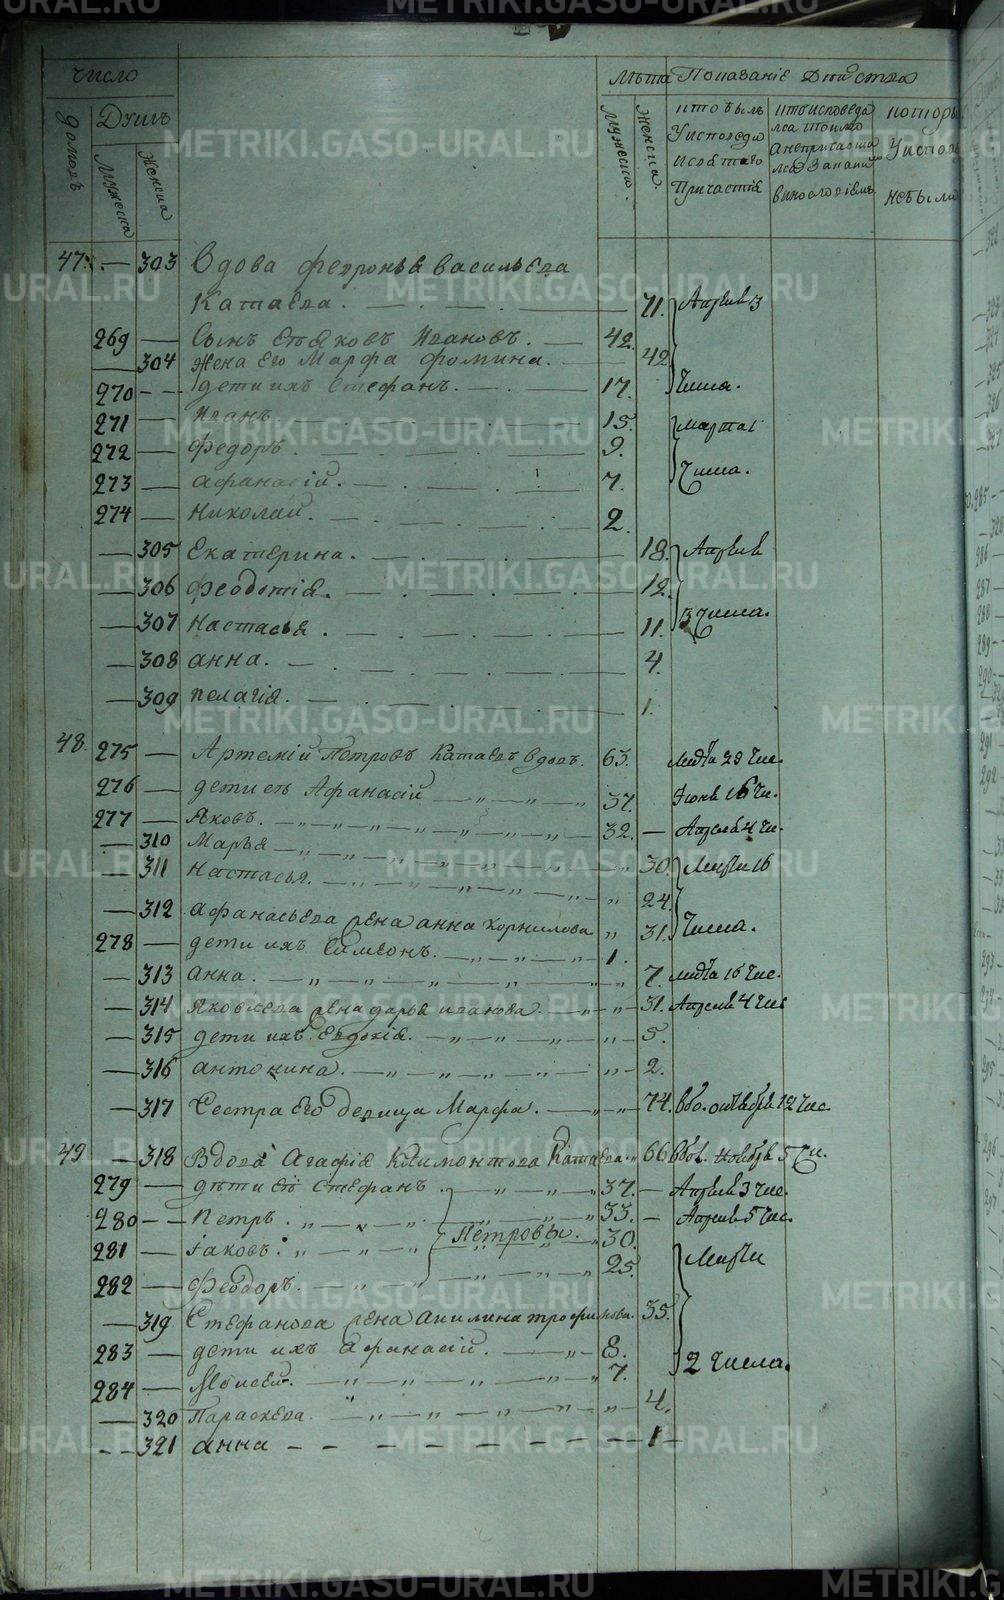 число
Лѣта Показаніе Действа
домовъ
Душъ
Мужеска
Женска
Мужеска
Женска
кто былъ
Уисповеди
Исвѣтаго
Причастіѣ
ктоисповеда
лсѧ токмо
Анепричаща
Уисповѣ
небыли
METRIKI.GASO-URAL.RU
47. — 303 Вдова Февронья Васильева
Катаева. 71. Апреля 3
269 — Сынъ Еѣ Яковъ Ивановъ. 42.
— 304 Жена Его Марфа Фомина. 42.
270 — — дети ихъ Стефанъ. 17. Числа.
271 — Иванъ 15. Марта 1
272 — Федоръ. 9.
273 — Афанасій. 7. Числа.
274 — Николай. 2
— 305 Екатерина. 18. Апреля
— 306 Феодотія. 12.
— 307 Настасья. 11. 3 числа.
— 308 анна. 4.
— 309 пелагія. 1.
48. 275 — Артемій Петровъ Катаевъ вдовъ. 63. Марта 29 Чис.
276 — дети еѣ Афанасій 37. Июня 16 Чи.
277 — Яковъ. 32. — Апреля 4 Чи.
— 310 Марья 30. Марта 16
— 311 Настасья. 24.
— 312 Афанасьева жена анна корнилова 31. Числа.
278 — дети ихъ Симеонъ. 1.
— 313 анна. 7. Марта 16 Чис.
— 314 Яковлева жена дарья иванова. 31. Апреля 4 Чис
— 315 дети ихъ Евдокія. 5.
— 316 антонина. 2.
— 317 Сестра Его девица Марфа. 74. октября 12 Чис.
49 — 318 Вдова Агафія Климонтова Катаева. 66 Ноября 5 Чи.
279 — дѣти Еѣ Стефанъ. 37. — Апреля 3 Чис.
280 — — Петръ. 33. — Апреля 5 Чис.
281 — Іаковъ. Петровы. 30. Марта
282 — Феодоръ. 25.
— 319 Стефанова жена Акилина трофимова. 35.
283 — дети ихъ Афанасій. 8. 2 Числа.
284 — Моисей. 7.
— 320 Параскева. 4.
— — 321 анна 1